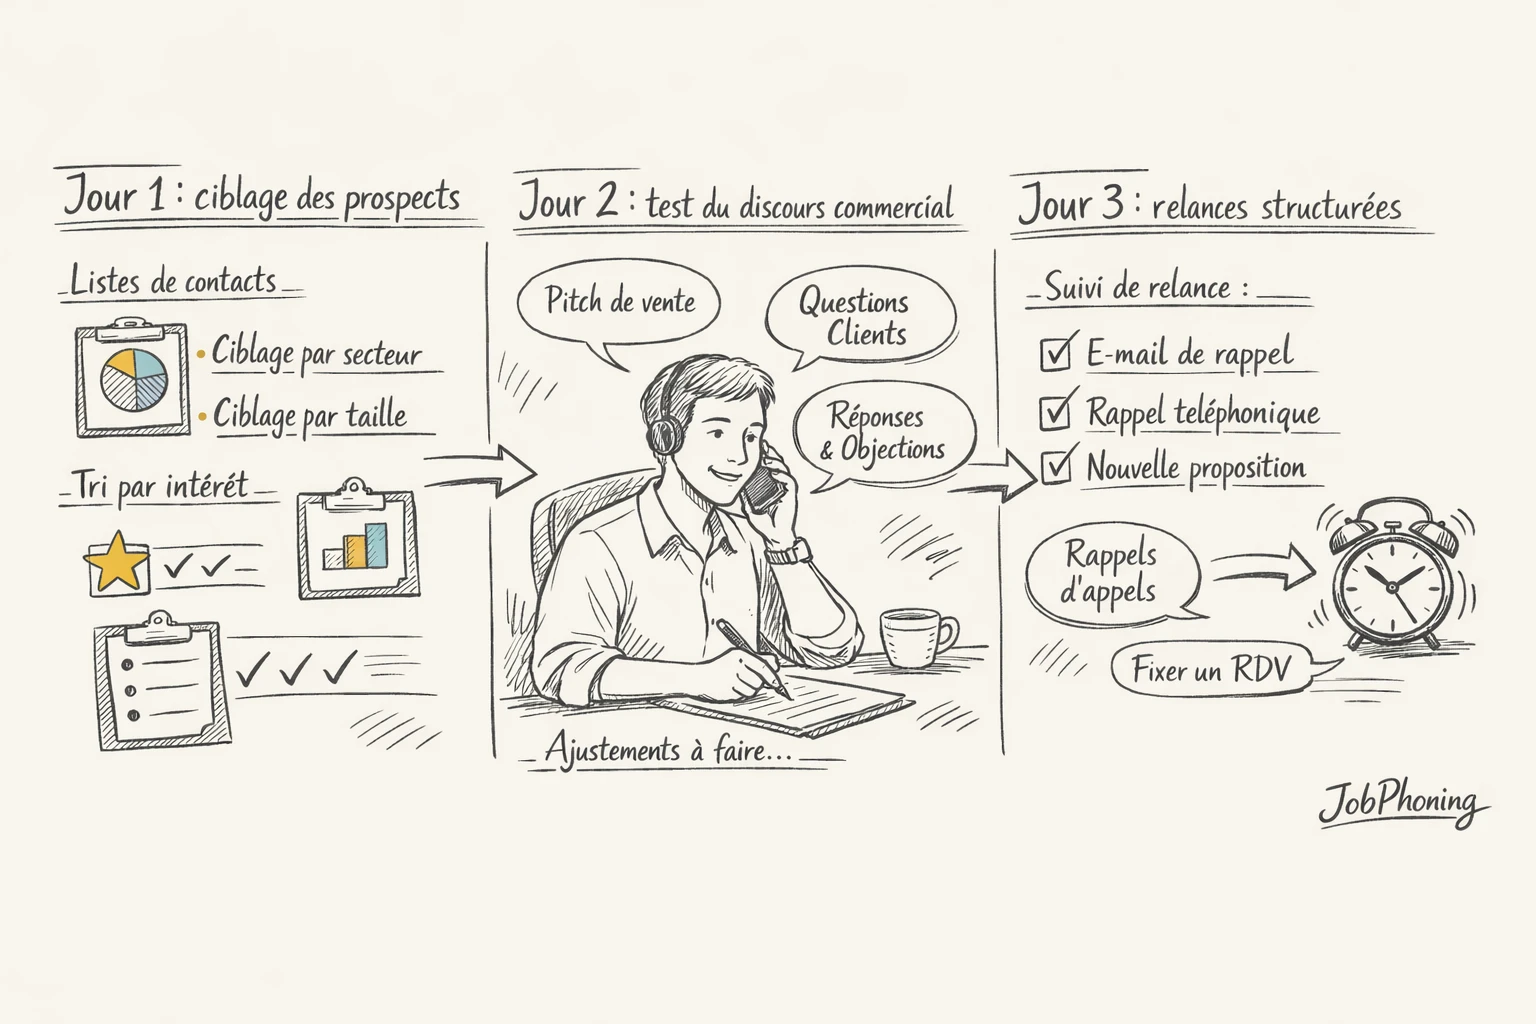 Jour 1 : ciblage des prospects
Listes de contacts
• Ciblage par secteur
• Ciblage par taille
Tri par intérét
Jour 2 : test du discours commercial
Pitch de vente
Questions
Clients
Réponses
& Objections
Ajustements à faire...
Jour 3 : relances structurées
Suivi de relance :
E-mail de rappel
Rappel teléphonique
Nouvelle proposition
Rappels
d'appels
Fixer un RDV
JobPhoning